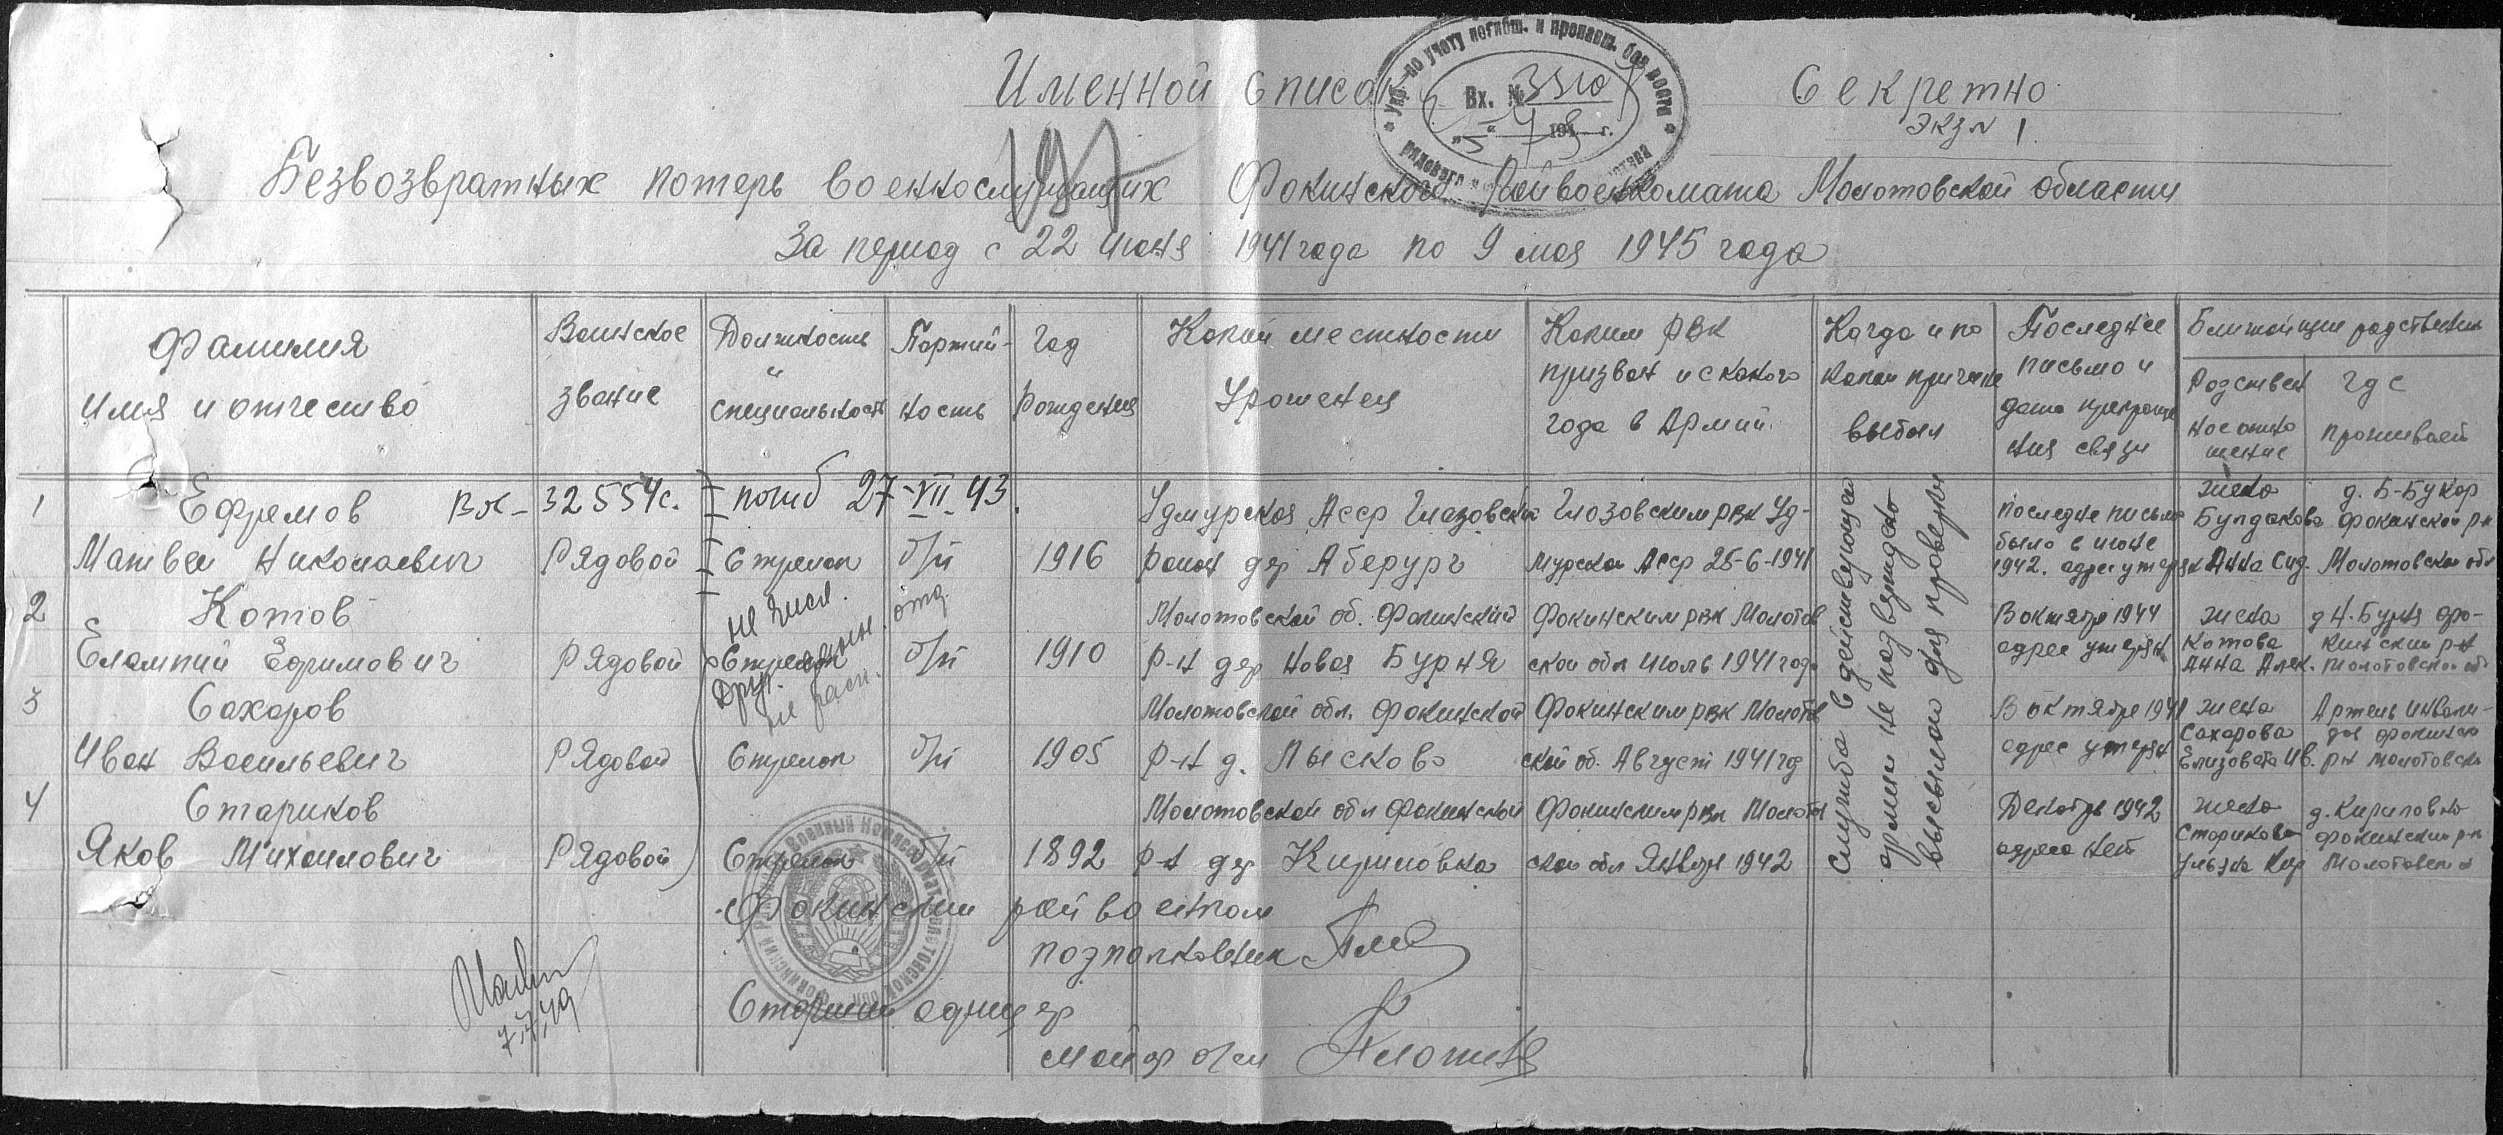 Именной список
Секретно
экз N 1.
Упр. по учету погибш. и пропавш. без вести
рядового и
Вх. №
194 г.
Безвозвратных потерь военнослужащих Фокинского Райвоенкомата Молотовской области
За период с 22 июня 1941 года по 9 мая 1945 года
Фамилия имя и отчество
Воинское звание
Должность и специальность
Партийность
Год рождения
Какой местности уроженец
Каким РВК призван и с какого года в Армии.
Когда и по какой причине выбыл
Последнее письмо и дата прекращения связи
Ближайшие родственники
Родственное отношение
где проживает
1 Ефремов Вх- 32554с. погиб 27-VII-43. Удмурская Асср Глазовски Глазовским рвк Уд- последне письмо жена д. Б-Букор
Матвей Николаевич Рядовой Стрелок б/п 1916 район дер Аберург мурской Асср 25-6-1941 было в июне 1942. адрес утерян Булдакова Анна Сид. Фокинской р-н Молотовской обл
2 Котов не числ. Молотовской об. Фокинский Фокинским рвк Молотов В октябре 1944 жена д Н. Бурня Фо-
Елампий Ефимович Рядовой Стрелок б/п 1910 р-н дер Новая Бурня ской обл июль 1941 года адрес утерян Котова Анна Алек. кинский р-н Молотовской об
Друг. данн. отд.
не расп.
3 Сахаров Молотовской обл. Фокинской Фокинским рвк Молотов В октябре 1941 жена Артель инвали-
Иван Васильевич Рядовой Стрелок б/п 1905 р-н д. Лысково ской об. Август 1941 год адрес утерян Сахарова Елизовета Ив. дов Фокинско рн Молотовско
4 Стариков Молотовской обл Фокинской Фокинским рвк Молотов Декабрь 1942 жена д. Кириловка
Яков Михаилович Рядовой Стрелок б/п 1892 р-н дер Кириловка ской обл Январь 1942 адреса нет Старикова Ульяна Кир Фокинский рн Молотовско
Служба в действующей
армии не подвзятдено
высылаю для проверки
Фокинский райвоенком
подполковник
Старший офицер
майор
Фокинский Районный Военный Комиссариат Молотовской обл.